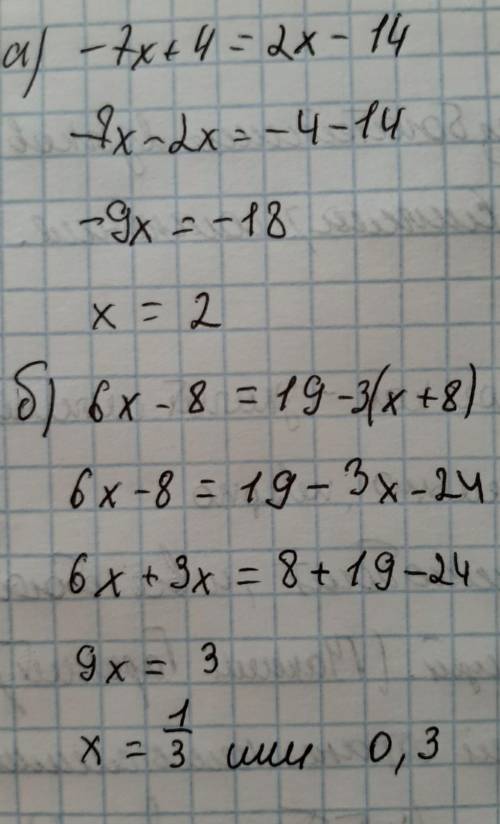 а) -7x + 4 = 2x - 14
-7x - 2x = -4 - 14
-9x = -18
x = 2
б) 6x - 8 = 19 - 3(x + 8)
6x - 8 = 19 - 3x - 24
6x + 3x = 8 + 19 - 24
9x = 3
x = 1/3 или 0,3